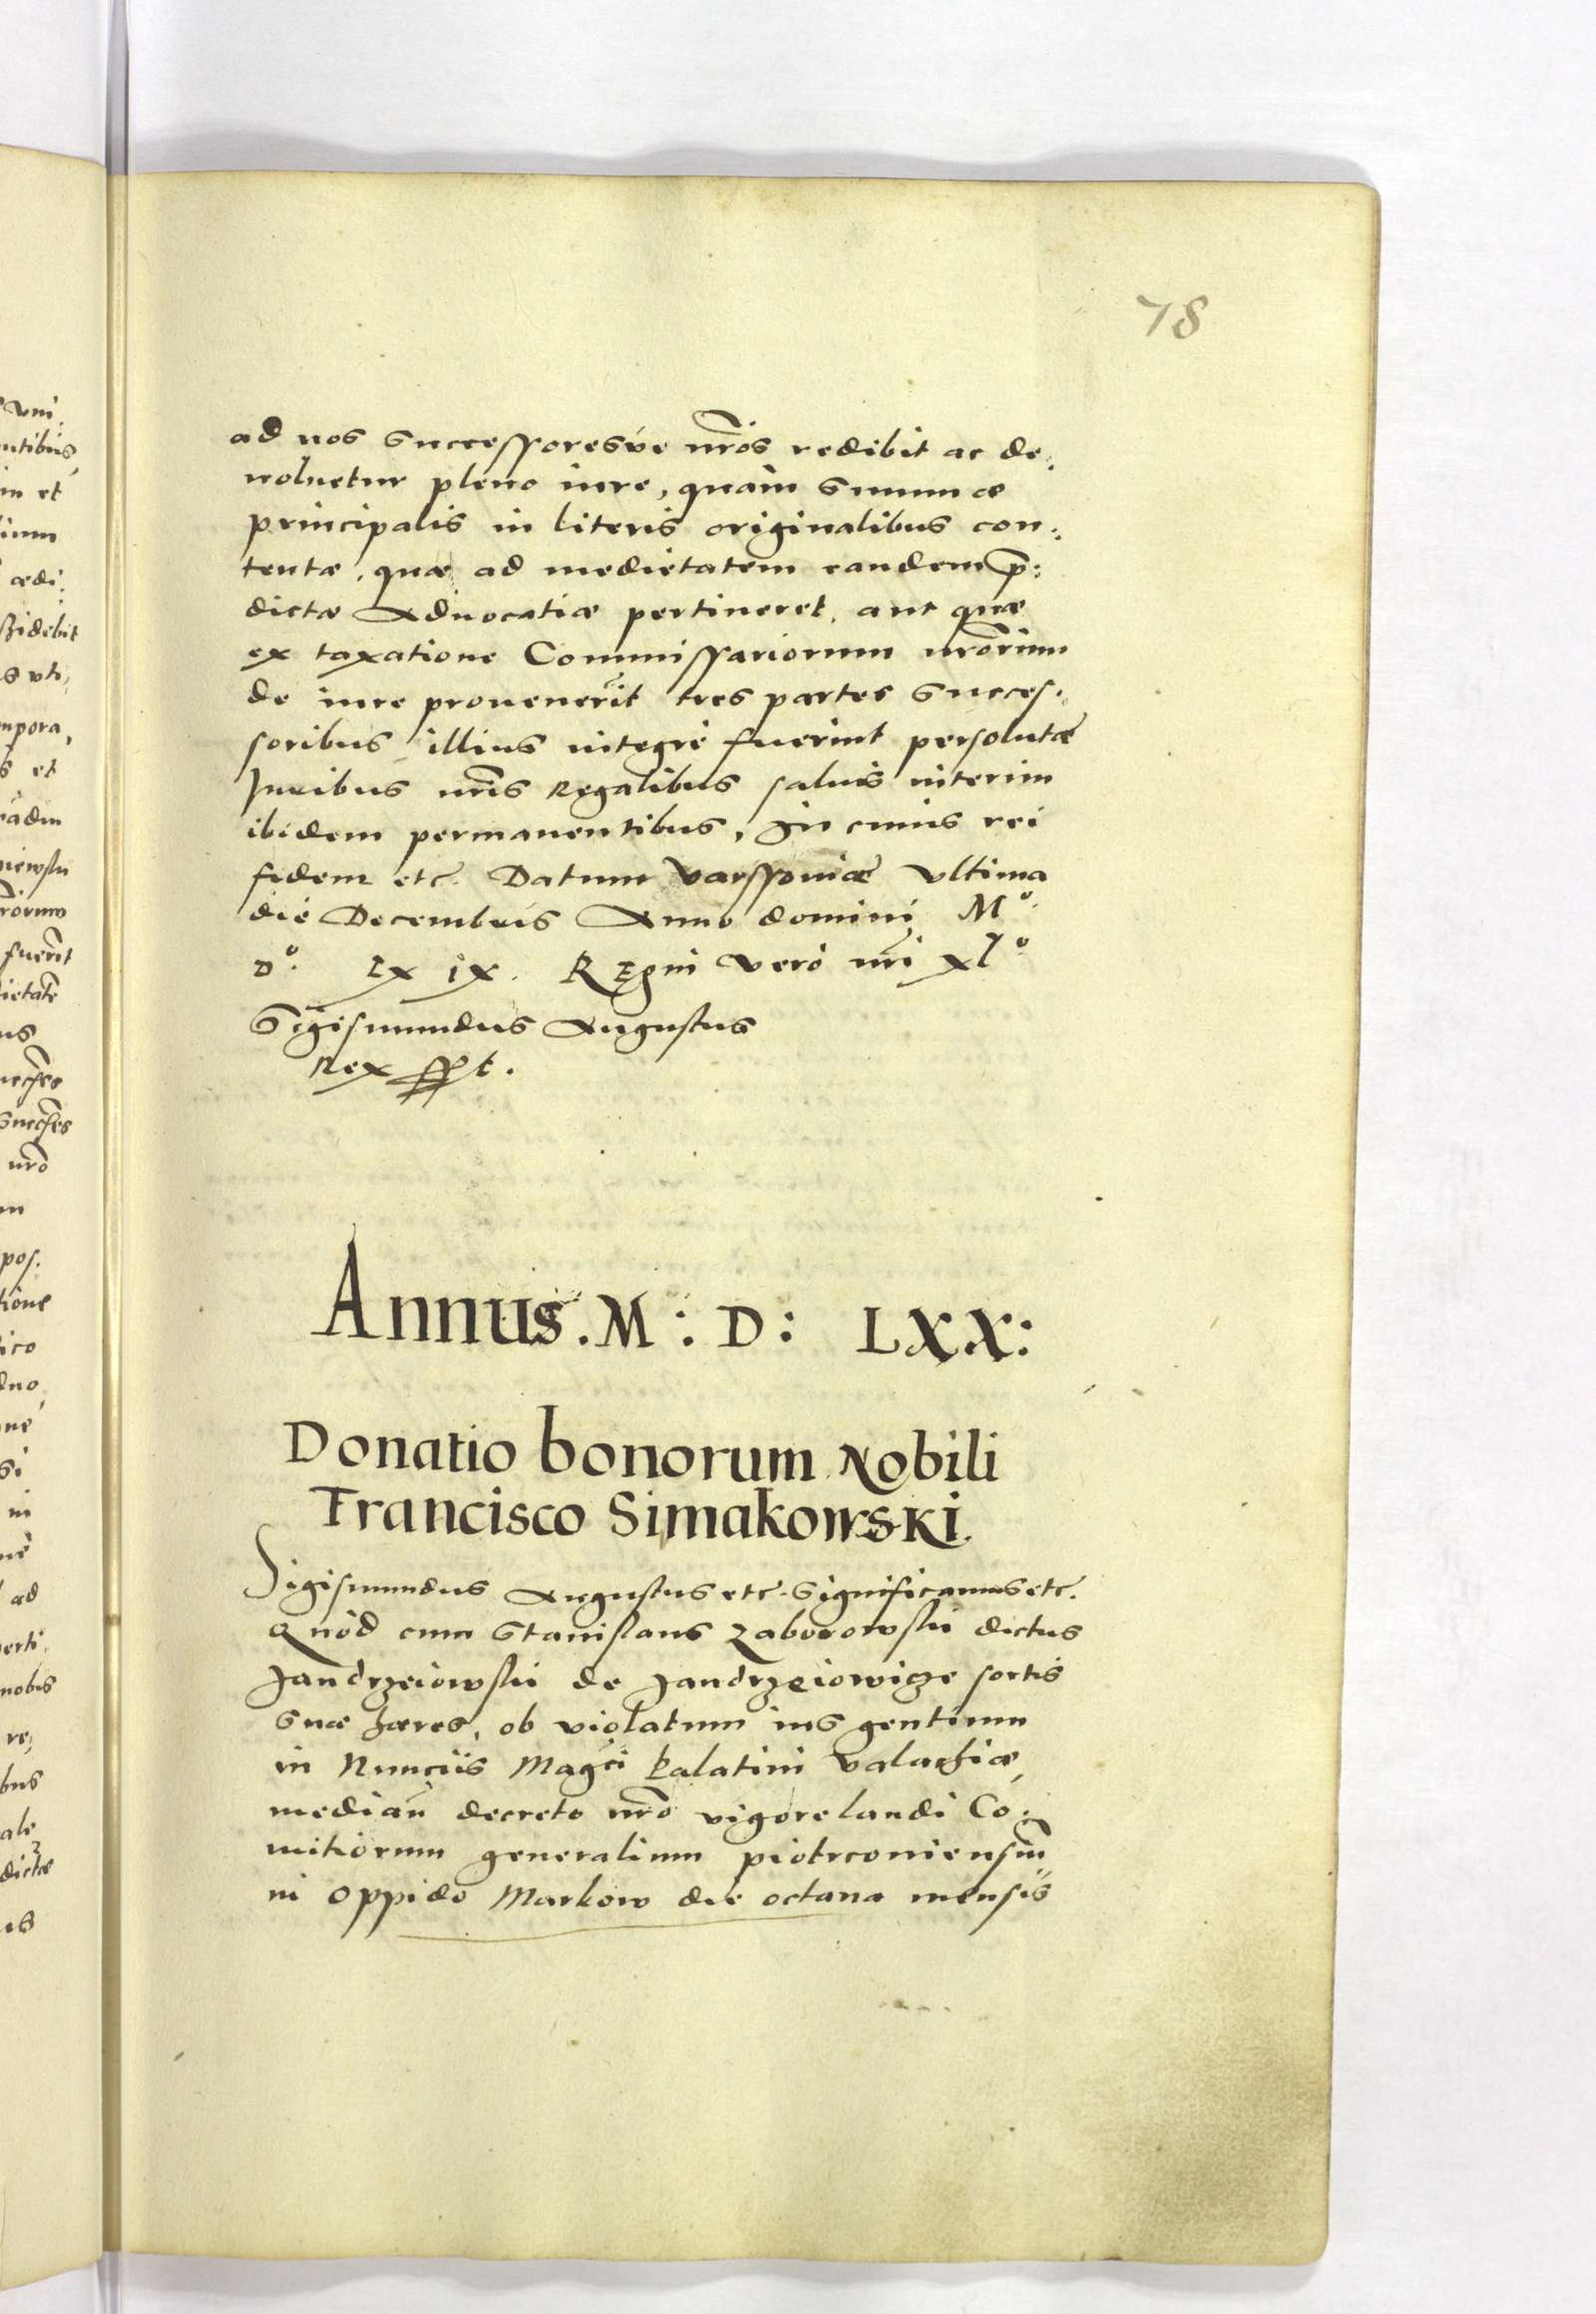 78
ad nos Successoresve nr̃os redibit ac de:
voluetur pleno iure, quàm Summæ
principalis in literis originalibus con:
tentæ, quæ ad medietatem eandem p̃:
dictæ Aduocatiæ pertineret, aut quæ
ex taxatione Commissariorum nr̃orum
de iure prouenerit tres partes Succes:
soribus illius integrè fuerint persolutæ
Iuribus nr̃is Regalibus saluis interim
ibidem permanentibus, In cuius rei
fidem etc. Datum Varssouiæ Vltima
die Decembris Anno domini Mº.
Dº. Lxix. Regni verò nr̃i xlº
Sigismundus Augustus
Rex sspt.
Annus. M: D: LXX:
Donatio bonorum Nobili
Francisco Simakowski.
Sigismundus Augustus etc. Significamus etc.
Quòd cum Stanislaus Zaborowski dictus
Jandrzeiowski de Jandrzeiowicze sortis
Suæ hæres, ob violatum ius gentium
in Nunciis Magci Palatini Valachiæ,
median̄ decreto nr̃o vigore laudi Co:
mitiorum generalium piotrcouiensiũ
in oppido Markow die octaua mensis